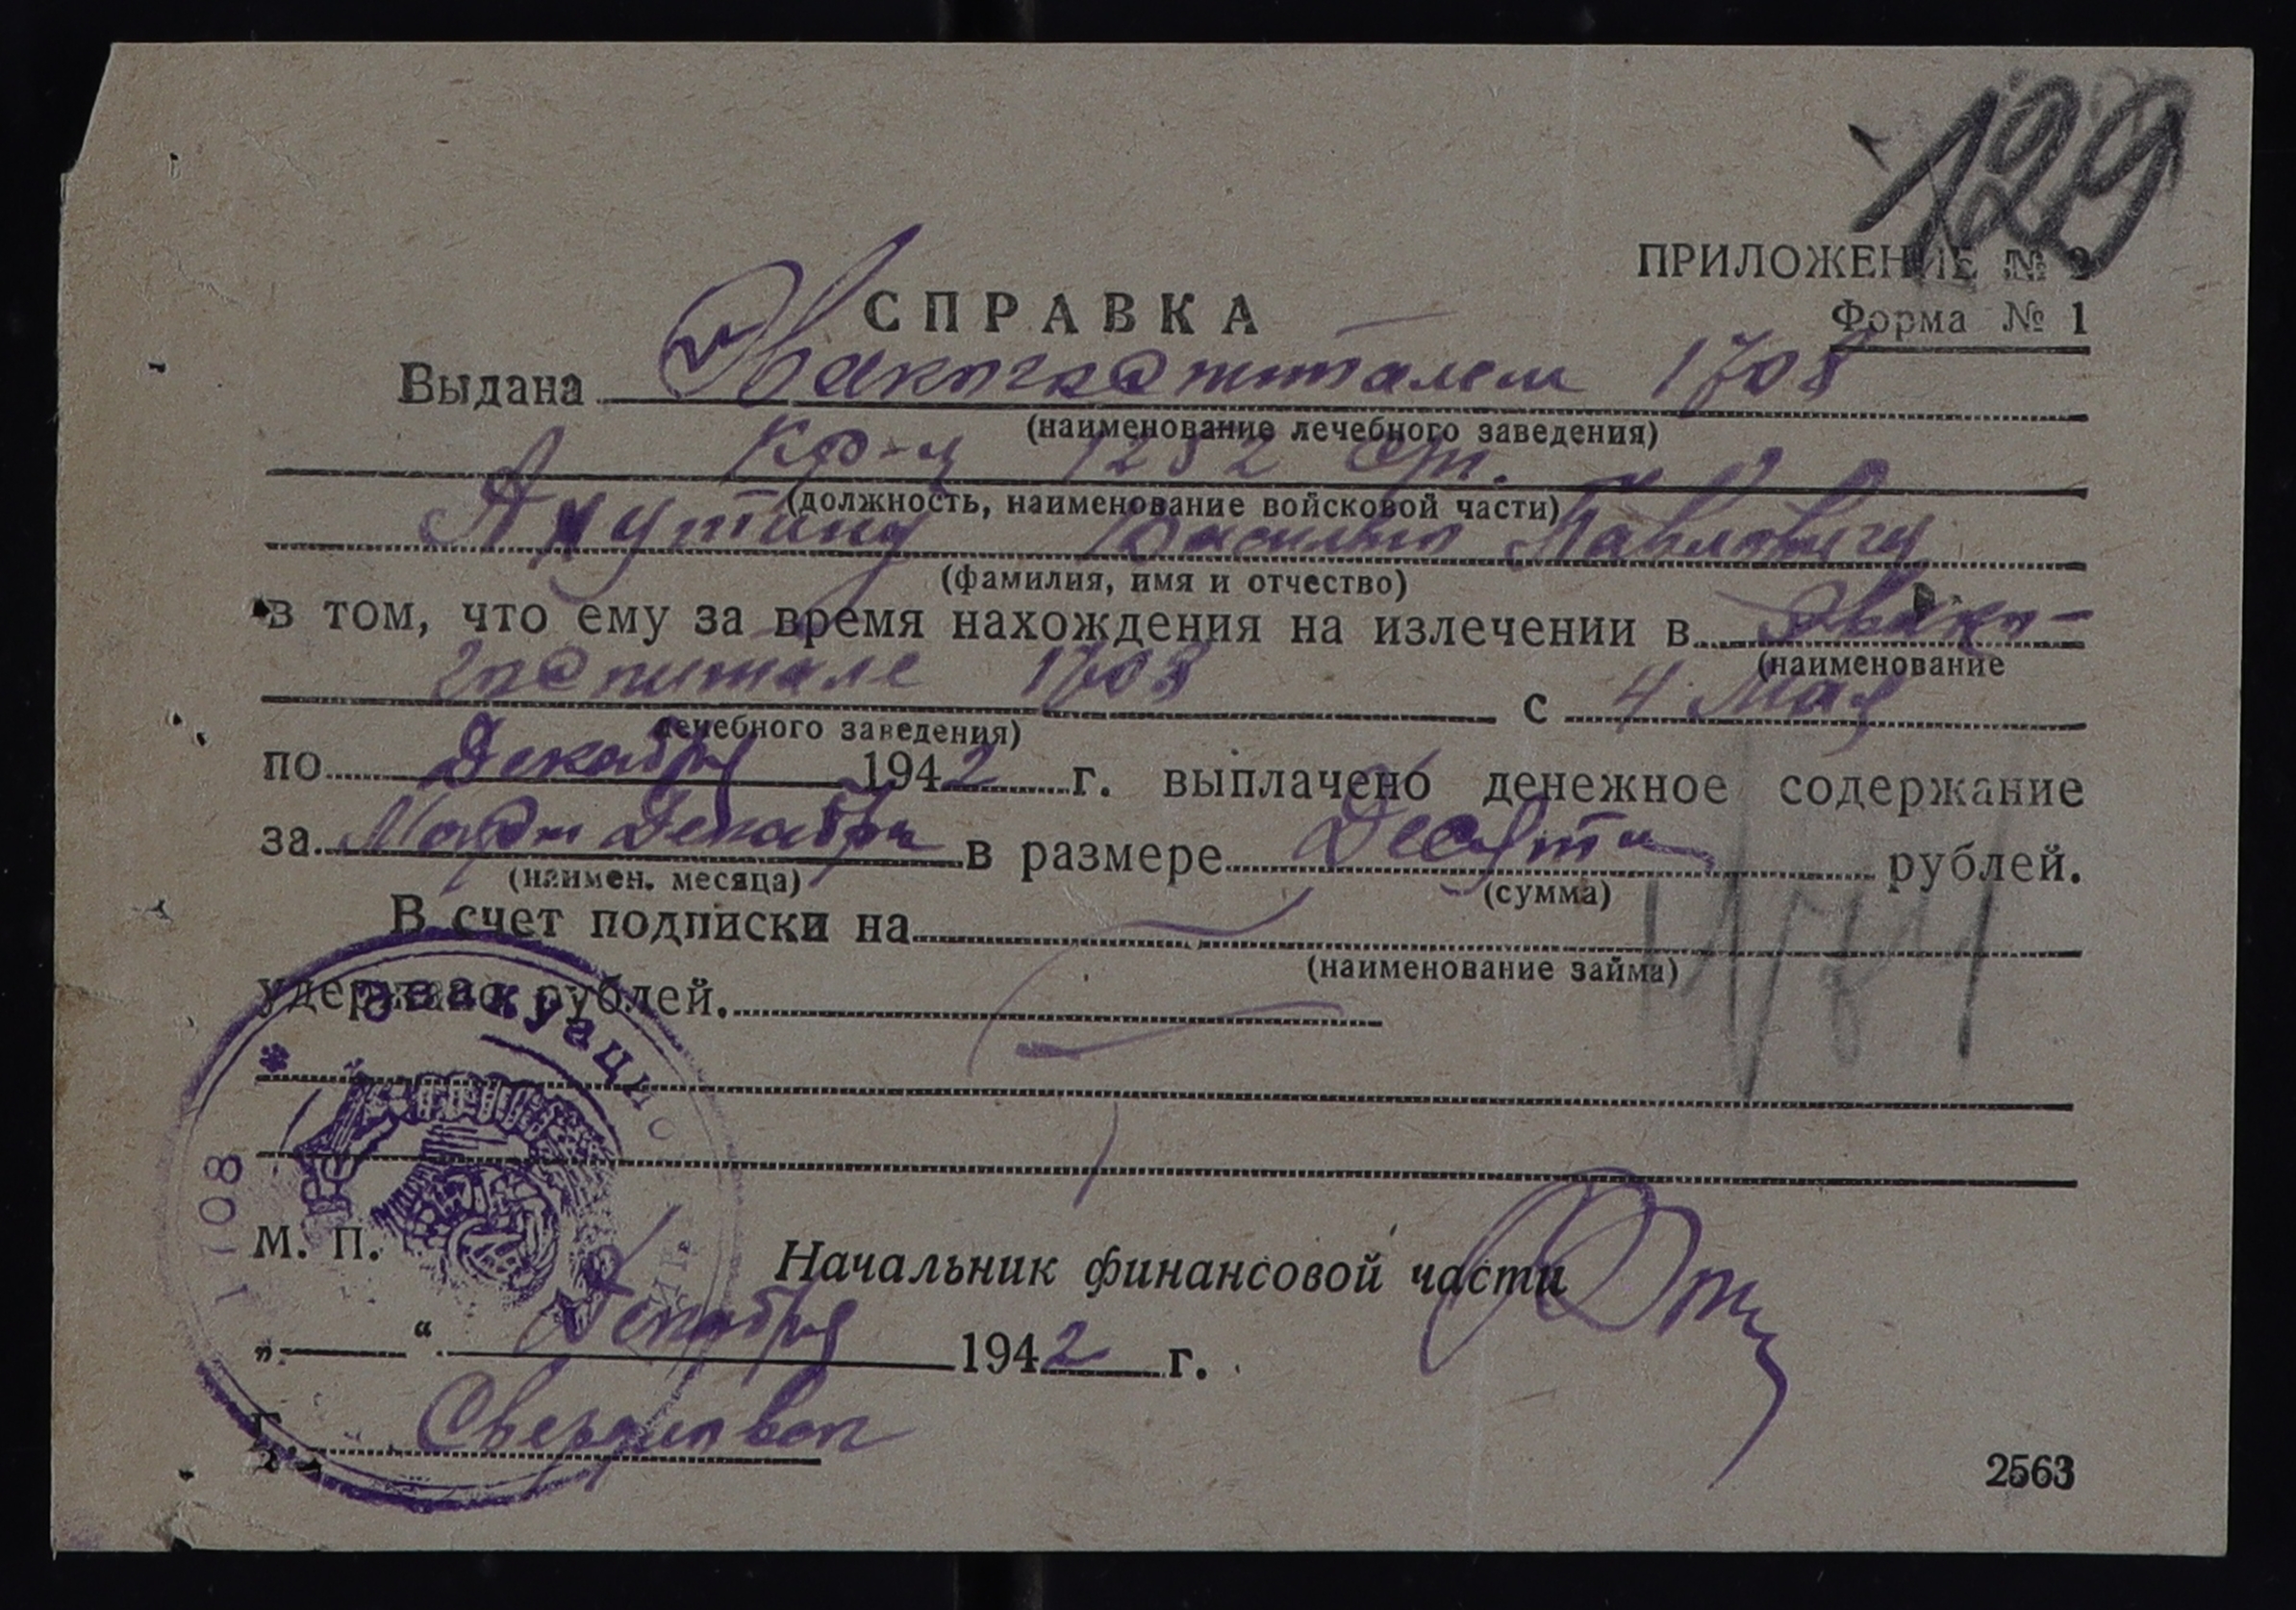 129
ПРИЛОЖЕНИЕ № 2
Форма № 1
СПРАВКА
Выдана Эвакогоспиталем 1708
(наименование лечебного заведения)
Кр-ц 1252
(должность, наименование войсковой части)
Ахутину Василию Павловичу
(фамилия, имя и отчество)
в том, что ему за время нахождения на излечении в Эвако-
(наименование
госпитале 1708 с 4 Мая
лечебного заведения)
по Декабрь 1942 г. выплачено денежное содержание
за Декабрь в размере Десяти рублей.
(наимен. месяца) (сумма)
В счет подписки на
(наименование займа)
удержано рублей.
Эвакуацио
1708
М. П. Начальник финансовой части
„ “ Декабря 1942 г.
г. Свердловск
2563